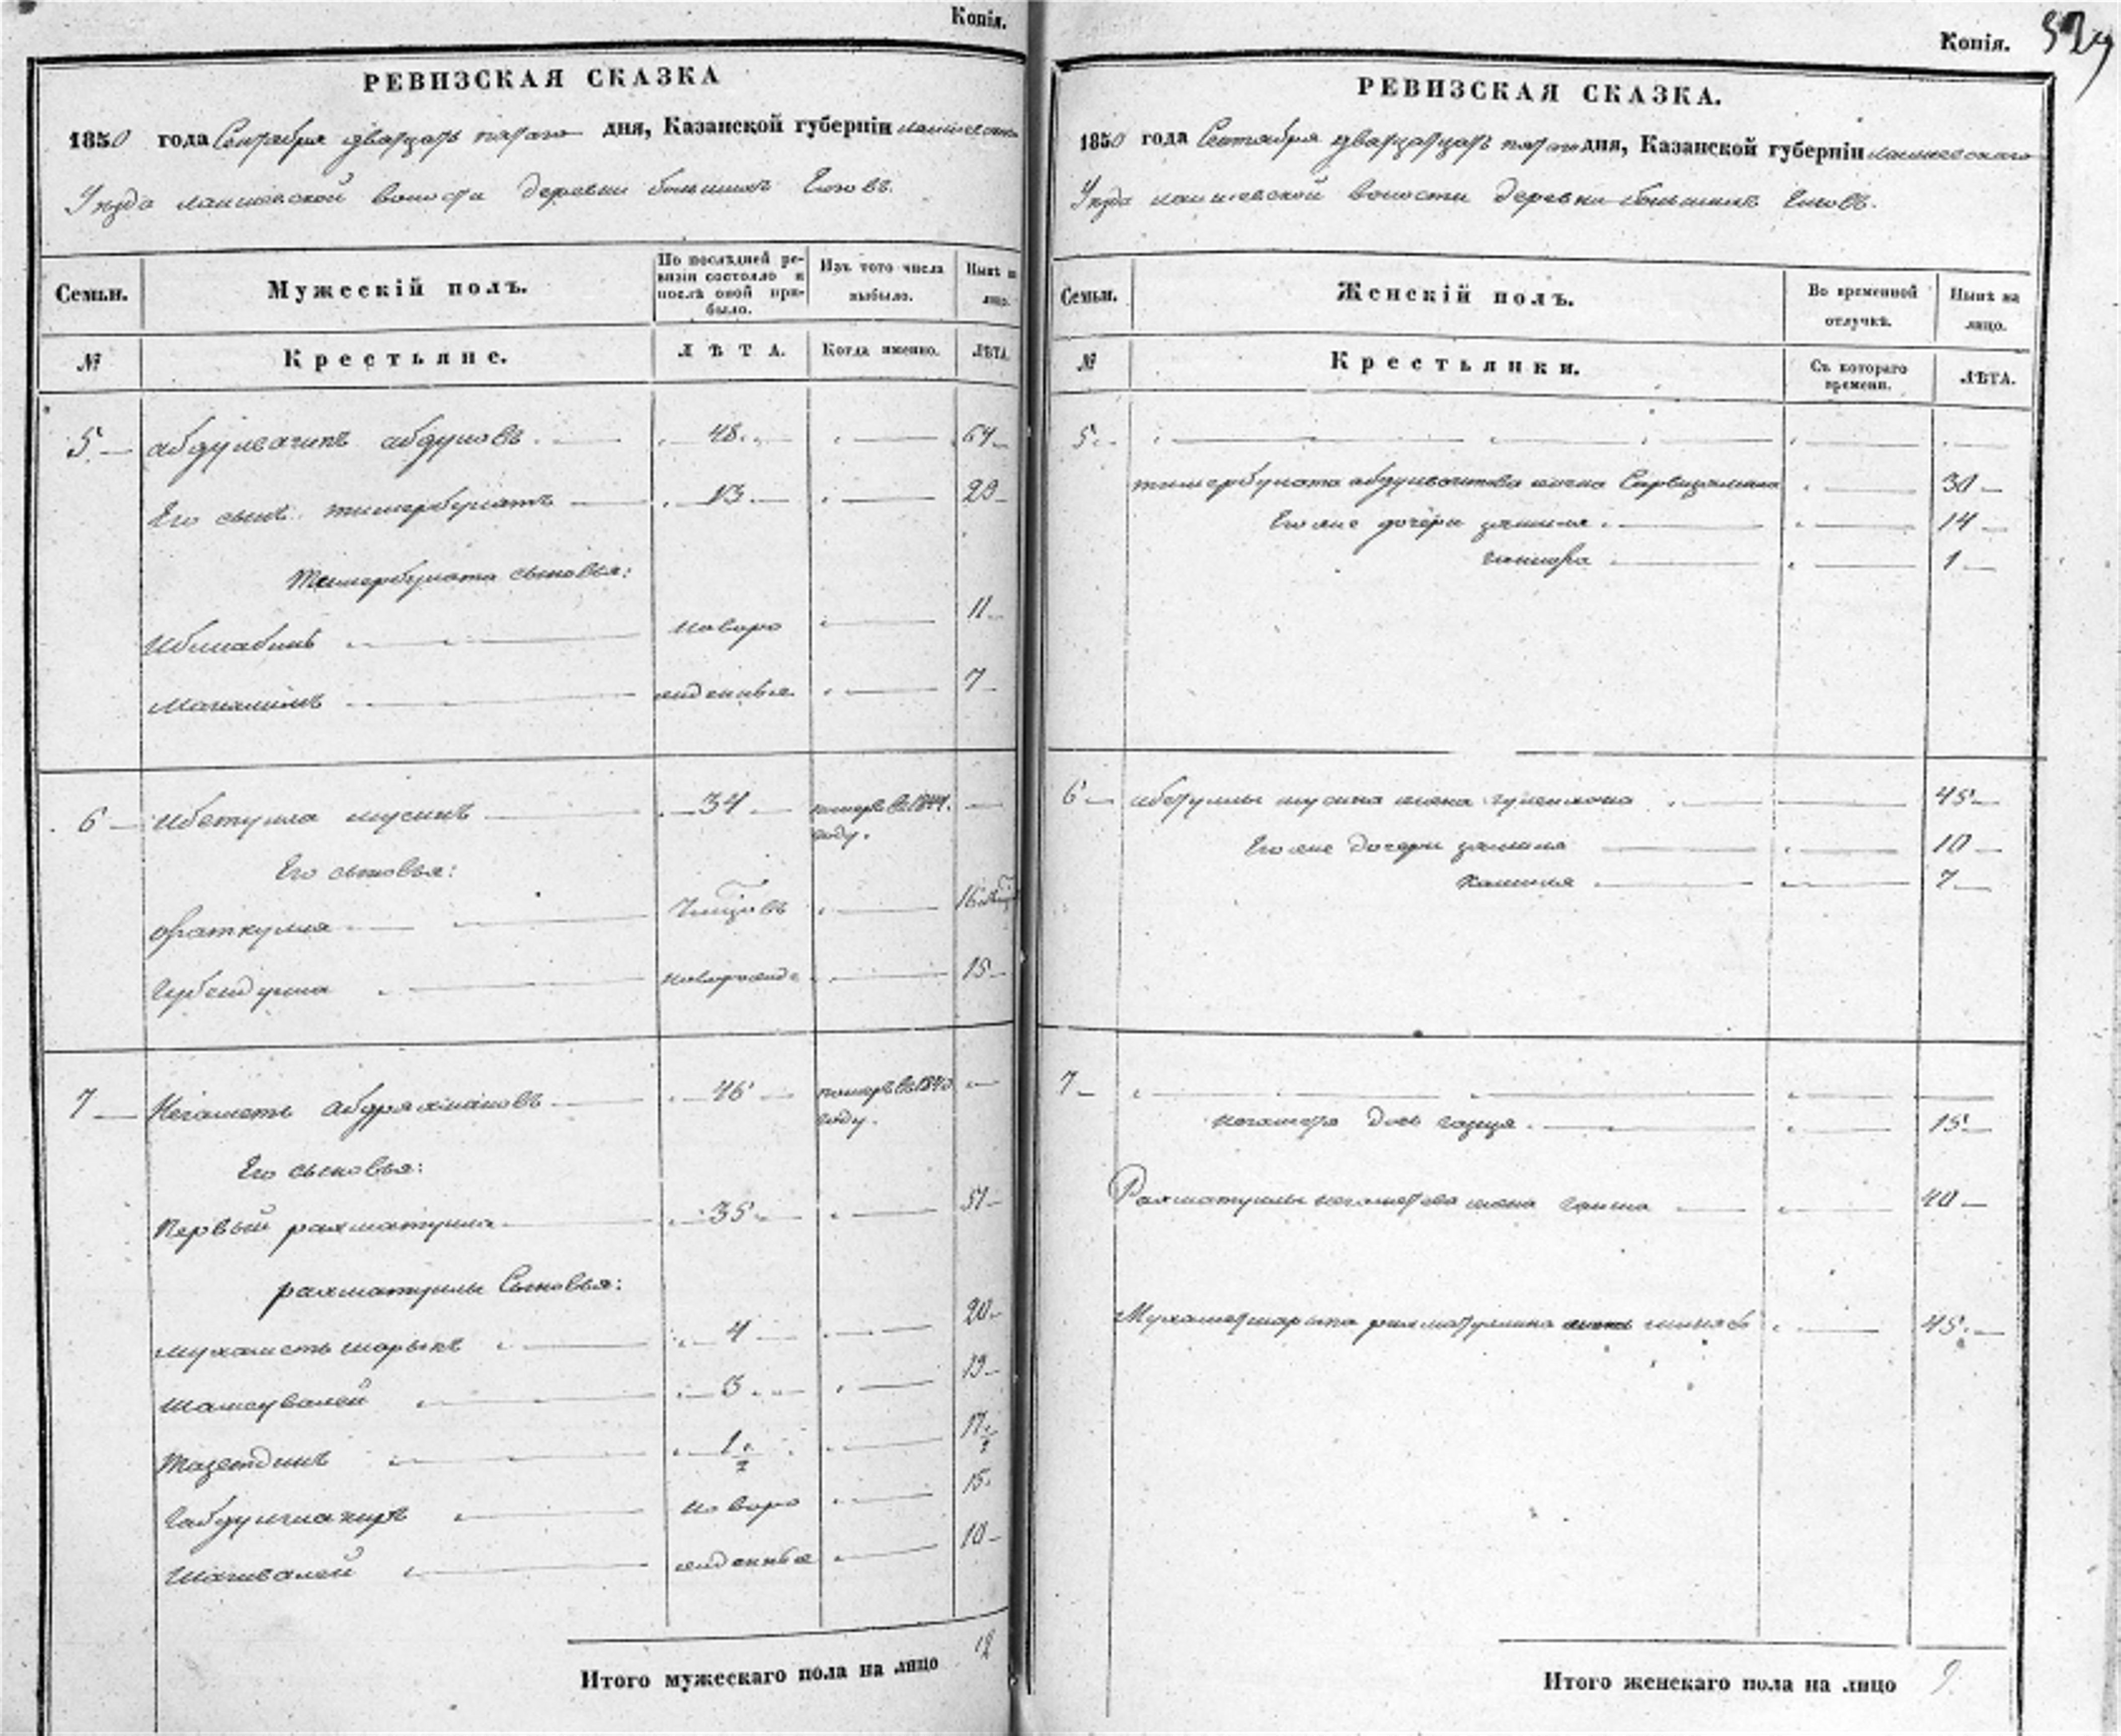 Копія.
РЕВИЗСКАЯ СКАЗКА
1850 года Сентября двадцать пятаго дня, Казанской губерніи лаишевскаго
Уезда лаишевской волости деревни большихъ
Семьи.
Мужескій полъ.
По послѣдней ревизіи состояло и послѣ оной прибыло.
Изъ того числа выбыло.
Нынѣ на лицо.
№
Крестьяне.
ЛѢТА.
Когда именно.
ЛѢТА.
5 абдулвагипъ абдуловъ 48 64
Его сынъ тимербулатъ 13 29
Тимербулата сыновья:
новоро 11
жденныя 7
6 ибетулла мусинъ 34 умеръ въ 1844 году.
Его сыновья:
фаткулла 16
новорожде 15
7 Негаметь абдряхмановъ 46 померъ въ 1840 году.
Его сыновья:
Первый рахматулла 35 51
рахматуллы Сыновья:
мухаметь шарыпъ 4 20
шамсувалей 3 19
тазетдинъ 1 1/2 17 1/2
новоро 15
шагивалей жденныя 10
Итого мужескаго пола на лицо 12
Копія.
529
РЕВИЗСКАЯ СКАЗКА.
1850 года Сентября двадцать пятаго дня, Казанской губерніи лаишевскаго
Уезда лаишевской волости деревни большихъ
Семьи.
Женскій полъ.
Во временной отлучкѣ.
Нынѣ на лицо.
№
Крестьянки.
Съ котораго времени.
ЛѢТА.
5
тимербулата абдулвагипова жена 30
Его же дочери 14
1
6 ибетуллы мусина жена 45
Его же дочери 10
7
7
негамета дочь 15
Рахматуллы негаметева жена 40
Мухаметшарыпа рахматуллина жена 45
Итого женскаго пола на лицо 9.